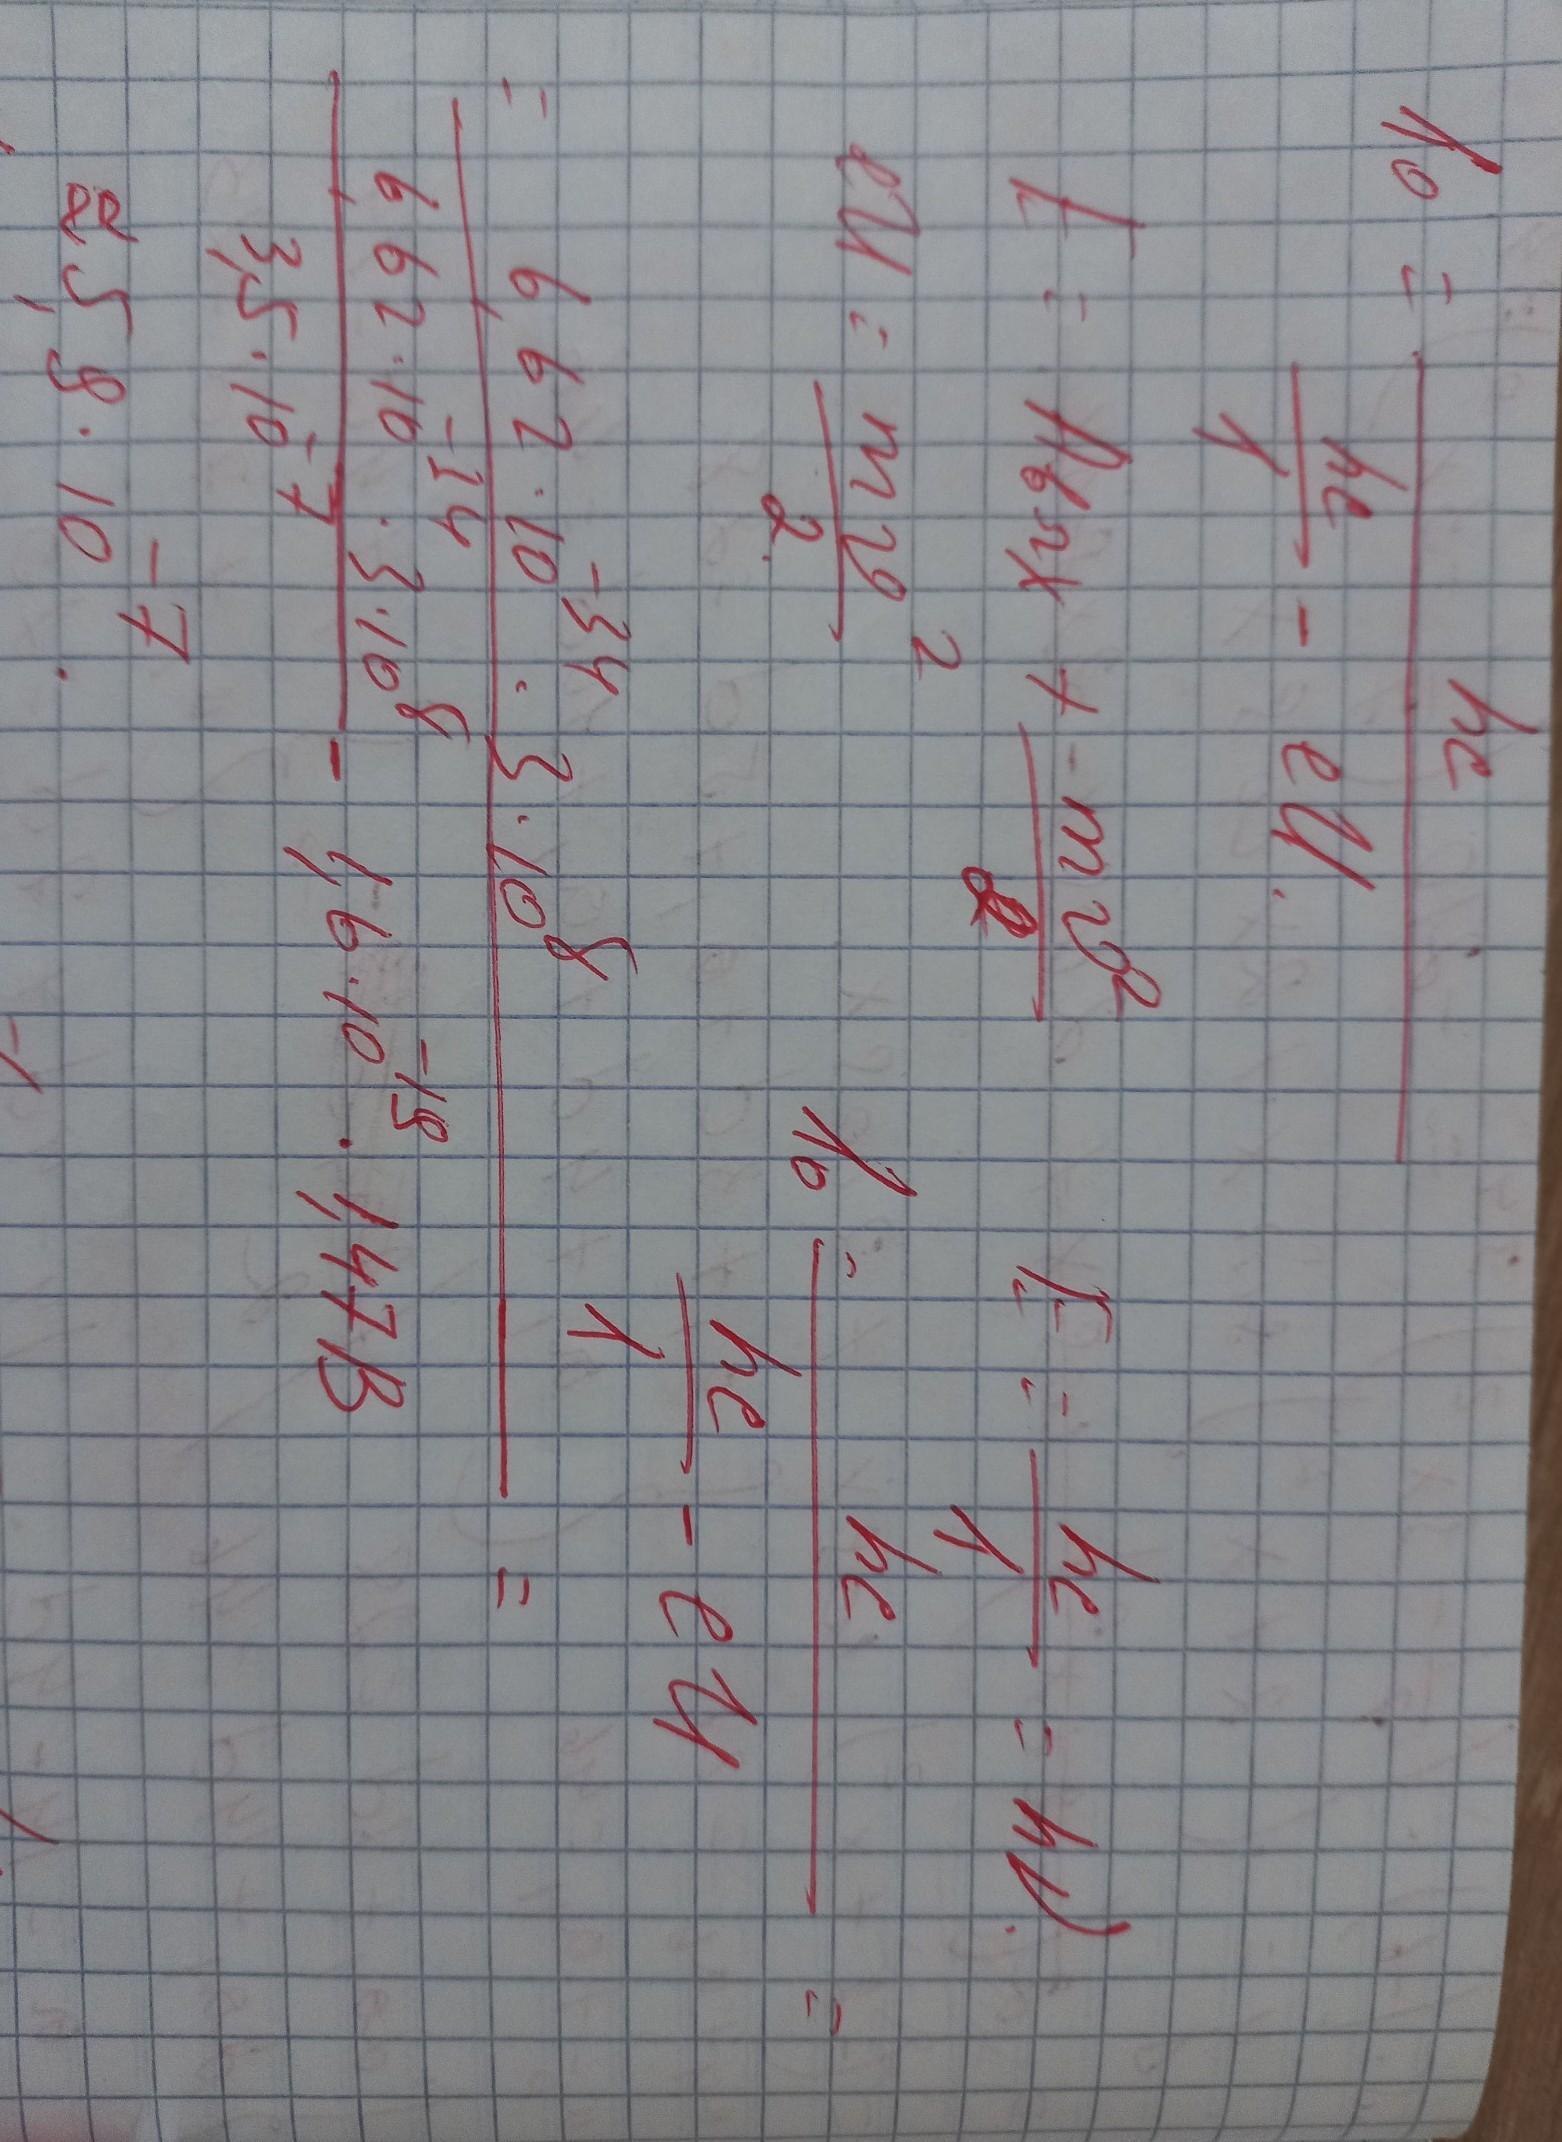 λ₀ = hc / (hc/λ - eU).
E = Aвых + mv²/2
E = hc/λ = hν.
eU = mv²/2
λ₀ = hc / (hc/λ - eU) =
= 6,62·10⁻³⁴·3·10⁸ / (6,62·10⁻³⁴·3·10⁸ / 3,5·10⁻⁷ - 1,6·10⁻¹⁹·1,47В) =